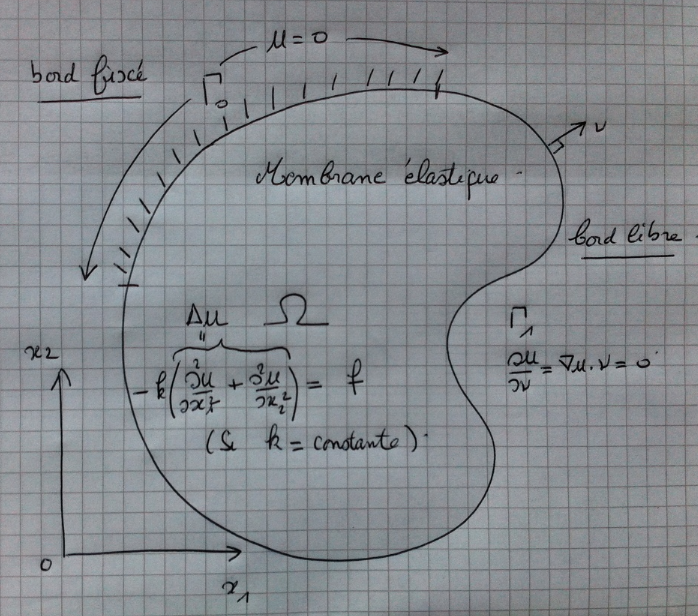 u = 0
bord fixé
Γ₀
ν
Membrane élastique.
bord libre.
Δu Ω
"
Γ₁
-k(∂²u/∂x₁² + ∂²u/∂x₂²) = f
∂u/∂ν = ∇u.ν = 0
(Si k = constante).
x₂
0
x₁